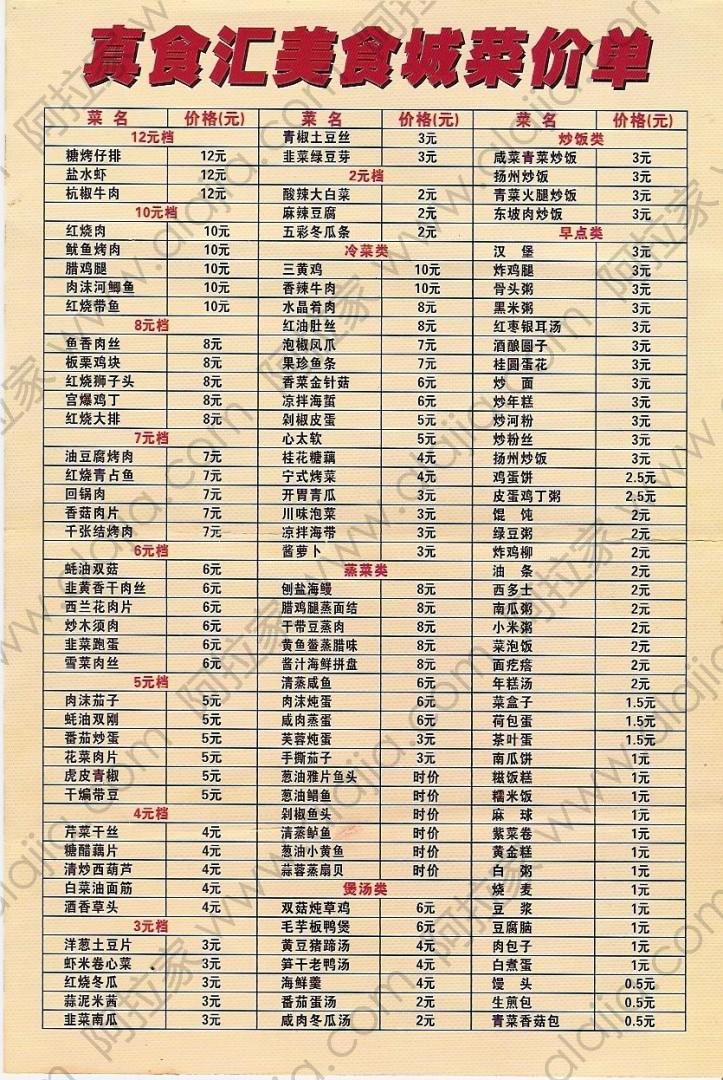 真食汇美食城菜价单
菜 名 价格(元)
12元档
糖烤仔排 12元
盐水虾 12元
杭椒牛肉 12元
10元档
红烧肉 10元
鱿鱼烤肉 10元
腊鸡腿 10元
肉沫河鲫鱼 10元
红烧带鱼 10元
8元档
鱼香肉丝 8元
板栗鸡块 8元
红烧狮子头 8元
宫爆鸡丁 8元
红烧大排 8元
7元档
油豆腐烤肉 7元
红烧青占鱼 7元
回锅肉 7元
香菇肉片 7元
千张结烤肉 7元
6元档
蚝油双菇 6元
韭黄香干肉丝 6元
西兰花肉片 6元
炒木须肉 6元
韭菜跑蛋 6元
雪菜肉丝 6元
5元档
肉沫茄子 5元
蚝油双刚 5元
番茄炒蛋 5元
花菜肉片 5元
虎皮青椒 5元
干煸带豆 5元
4元档
芹菜干丝 4元
糖醋藕片 4元
清炒西葫芦 4元
白菜油面筋 4元
酒香草头 4元
3元档
洋葱土豆片 3元
虾米卷心菜 3元
红烧冬瓜 3元
蒜泥米茜 3元
韭菜南瓜 3元
菜 名 价格(元)
青椒土豆丝 3元
韭菜绿豆芽 3元
2元档
酸辣大白菜 2元
麻辣豆腐 2元
五彩冬瓜条 2元
冷菜类
三黄鸡 10元
香辣牛肉 10元
水晶肴肉 8元
红油肚丝 8元
泡椒凤爪 7元
果珍鱼条 7元
香菜金针菇 6元
凉拌海蜇 6元
剁椒皮蛋 5元
心太软 5元
桂花糖藕 4元
宁式烤菜 4元
开胃青瓜 3元
川味泡菜 3元
凉拌海带 3元
酱萝卜 3元
蒸菜类
刨盐海鳗 8元
腊鸡腿蒸面结 8元
干带豆蒸肉 8元
黄鱼鲞蒸腊味 8元
酱汁海鲜拼盘 8元
清蒸咸鱼 6元
肉沫炖蛋 6元
咸肉蒸蛋 6元
芙蓉炖蛋 3元
手撕茄子 3元
葱油雅片鱼头 时价
葱油鲳鱼 时价
剁椒鱼头 时价
清蒸鲈鱼 时价
葱油小黄鱼 时价
蒜蓉蒸扇贝 时价
煲汤类
双菇炖草鸡 6元
毛芋板鸭煲 6元
黄豆猪蹄汤 4元
笋干老鸭汤 4元
海鲜羹 4元
番茄蛋汤 2元
咸肉冬瓜汤 2元
菜 名 价格(元)
炒饭类
咸菜青菜炒饭 3元
扬州炒饭 3元
青菜火腿炒饭 3元
东坡肉炒饭 3元
早点类
汉 堡 3元
炸鸡腿 3元
骨头粥 3元
黑米粥 3元
红枣银耳汤 3元
酒酿圆子 3元
桂圆蛋花 3元
炒 面 3元
炒年糕 3元
炒河粉 3元
炒粉丝 3元
扬州炒饭 3元
鸡蛋饼 2.5元
皮蛋鸡丁粥 2.5元
馄 饨 2元
绿豆粥 2元
炸鸡柳 2元
油 条 2元
西多士 2元
南瓜粥 2元
小米粥 2元
菜泡饭 2元
面疙瘩 2元
年糕汤 2元
菜盒子 1.5元
荷包蛋 1.5元
茶叶蛋 1.5元
南瓜饼 1元
糍饭糕 1元
糯米饭 1元
麻 球 1元
紫菜卷 1元
黄金糕 1元
白 粥 1元
烧 麦 1元
豆 浆 1元
豆腐脑 1元
肉包子 1元
白煮蛋 1元
馒 头 0.5元
生煎包 0.5元
青菜香菇包 0.5元
阿拉家 www.alajia.com